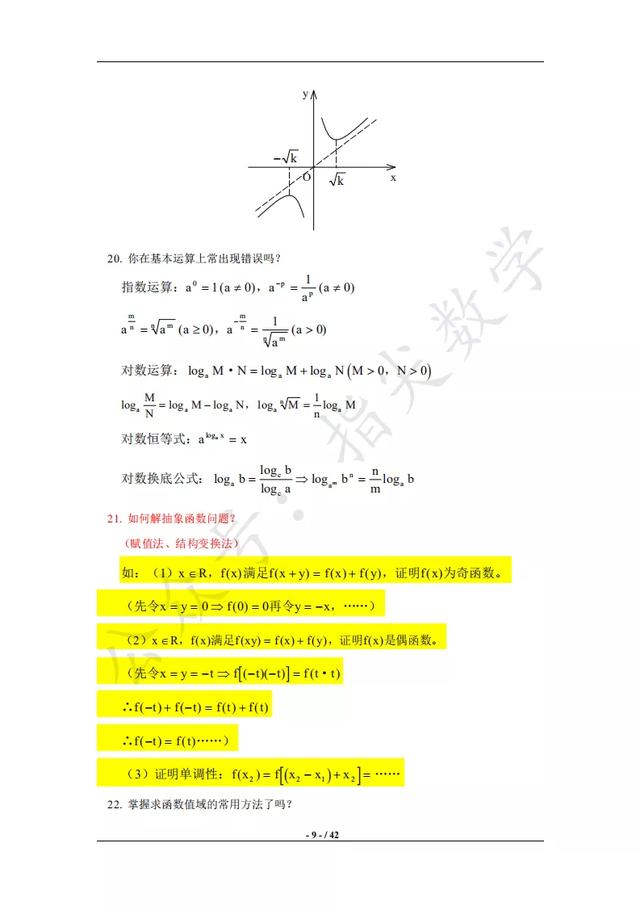 y
−√k
O
√k
x
20. 你在基本运算上常出现错误吗？
指数运算：a⁰ = 1 (a ≠ 0)，a⁻ᵖ = 1/aᵖ (a ≠ 0)
a^(m/n) = ⁿ√aᵐ (a ≥ 0)，a^(−m/n) = 1/ⁿ√aᵐ (a > 0)
对数运算：logₐ M·N = logₐ M + logₐ N (M > 0，N > 0)
logₐ M/N = logₐ M − logₐ N，logₐ ⁿ√M = 1/n logₐ M
对数恒等式：a^(logₐ x) = x
对数换底公式：logₐ b = log_c b/log_c a ⇒ log_(aᵐ) bⁿ = n/m logₐ b
21. 如何解抽象函数问题？
（赋值法、结构变换法）
如：（1）x ∈ R，f(x)满足f(x + y) = f(x) + f(y)，证明f(x)为奇函数。
（先令x = y = 0 ⇒ f(0) = 0再令y = −x，……）
（2）x ∈ R，f(x)满足f(xy) = f(x) + f(y)，证明f(x)是偶函数。
（先令x = y = −t ⇒ f[(−t)(−t)] = f(t·t)
∴f(−t) + f(−t) = f(t) + f(t)
∴f(−t) = f(t)……）
（3）证明单调性：f(x₂) = f[(x₂ − x₁) + x₂] = ……
22. 掌握求函数值域的常用方法了吗？
- 9 - / 42
公众号：指尖数学